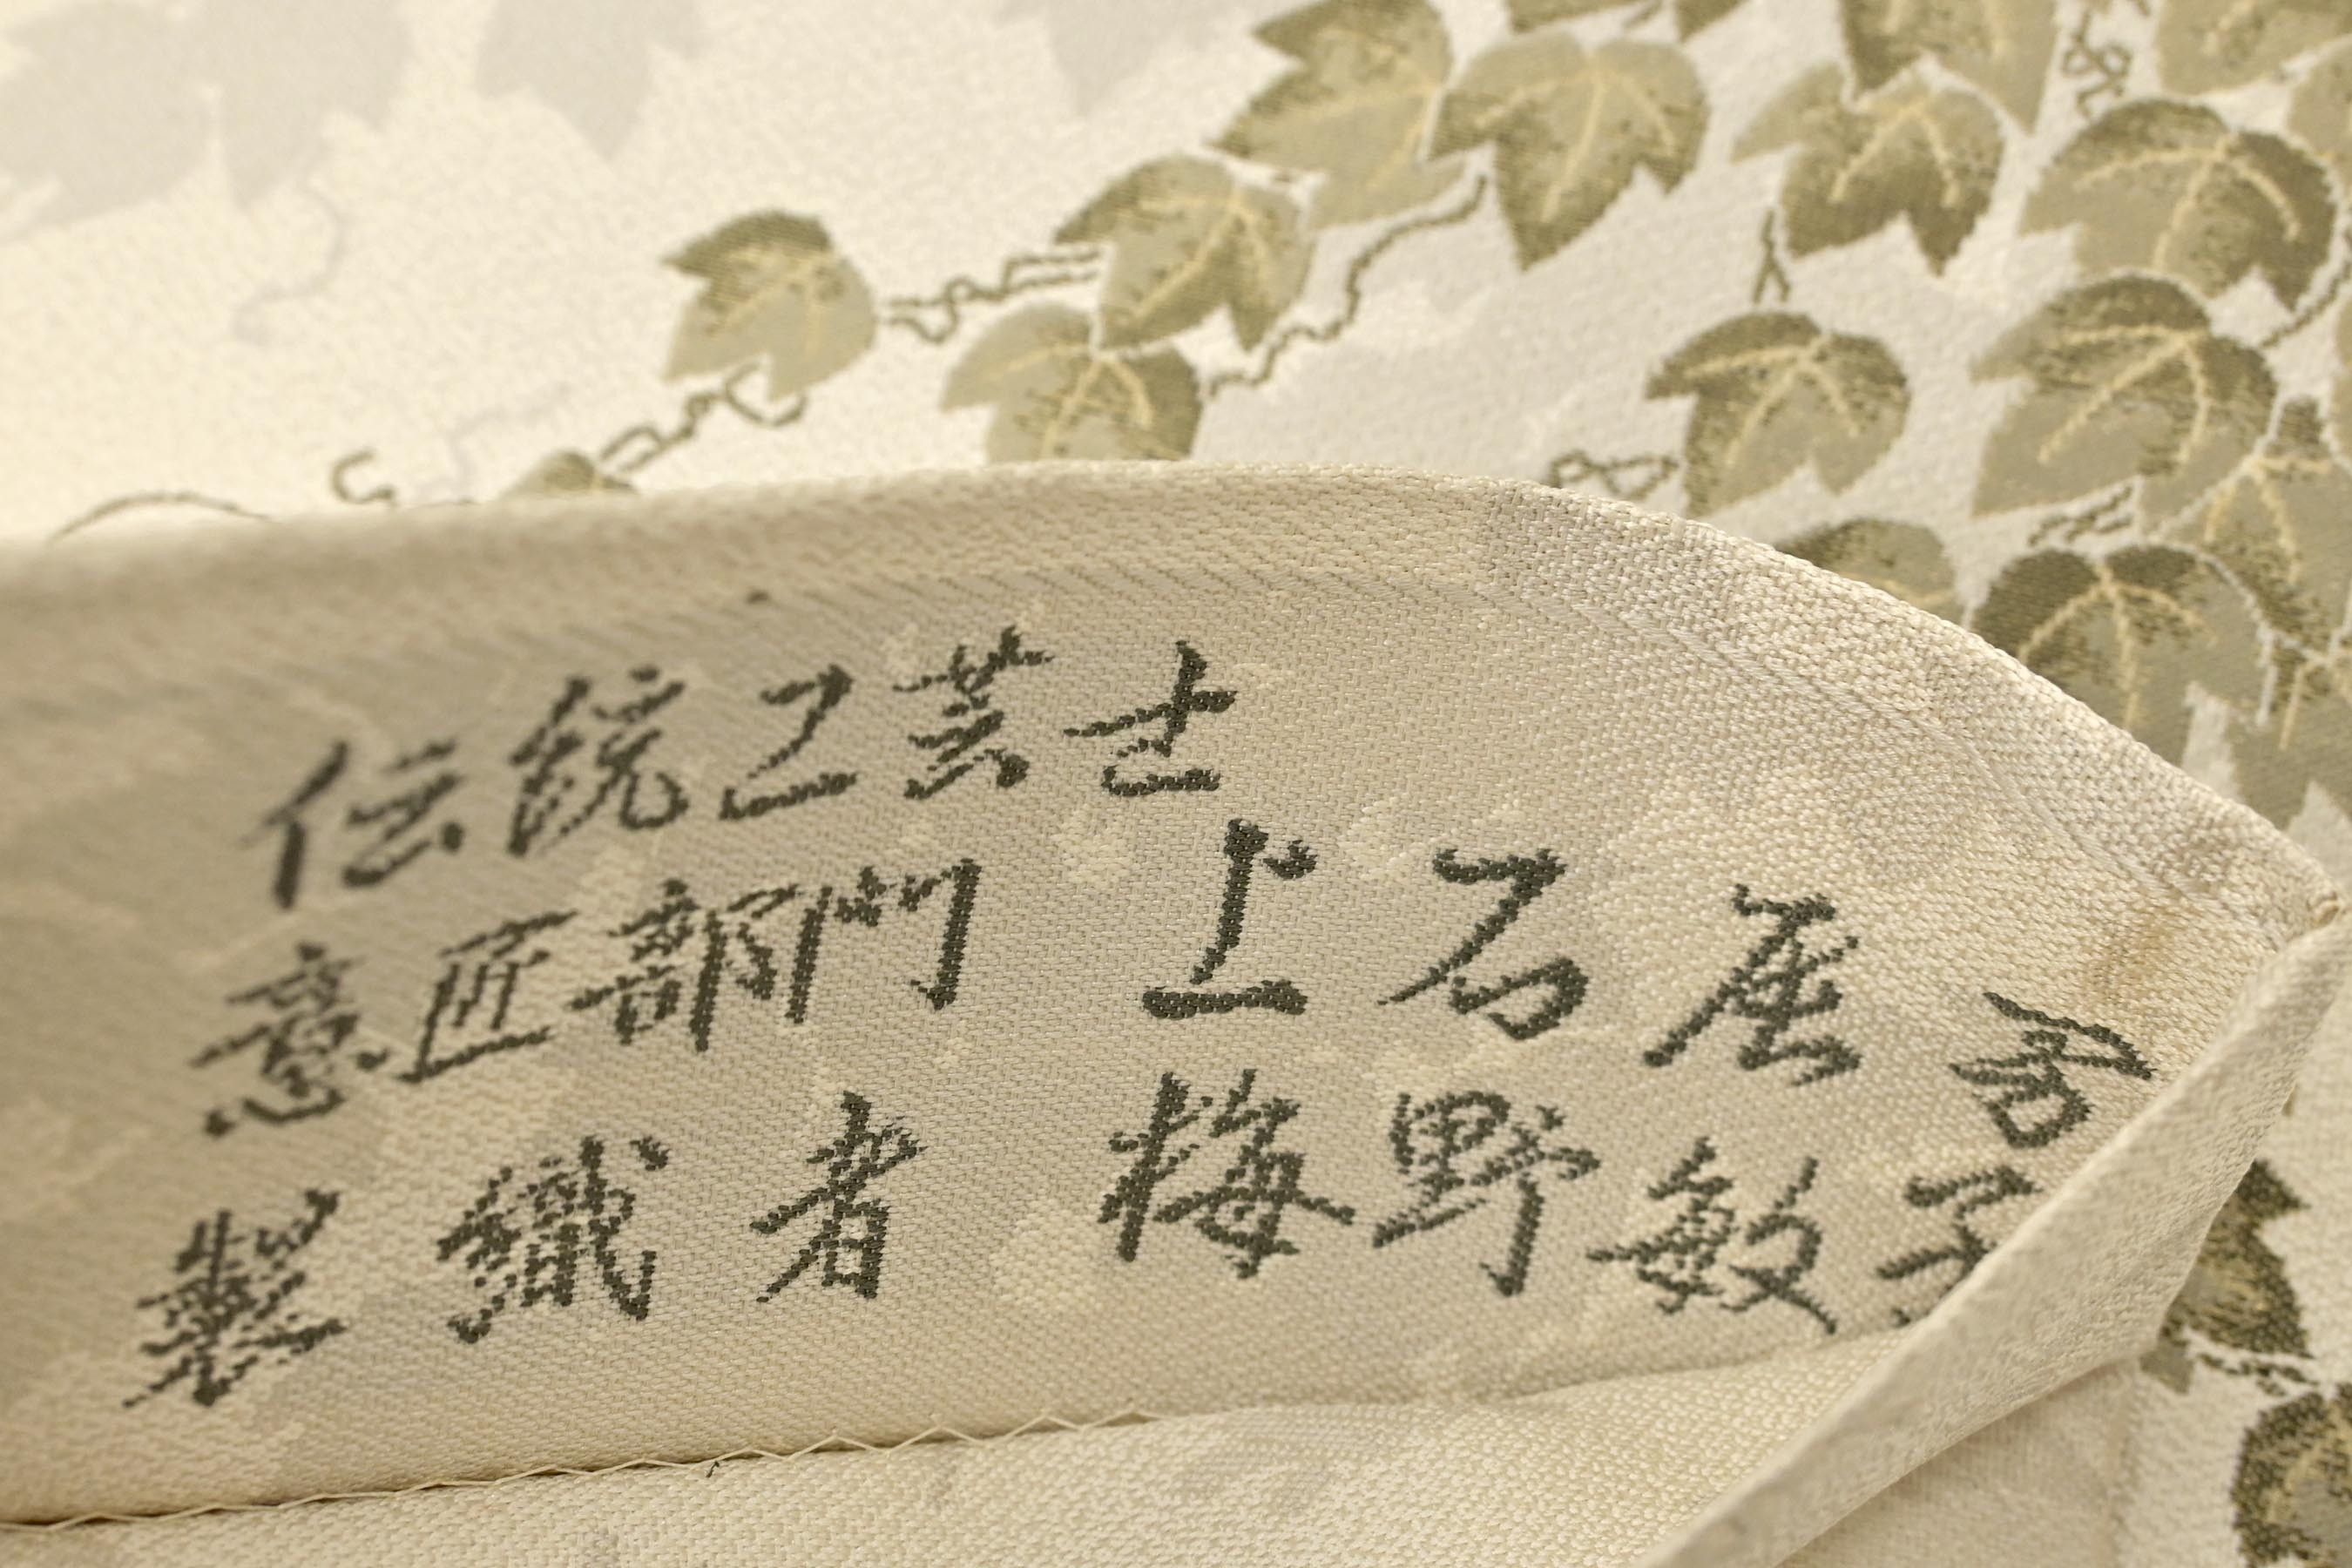 伝統工芸士
意匠部門 上石唇
製織者 梅野敏